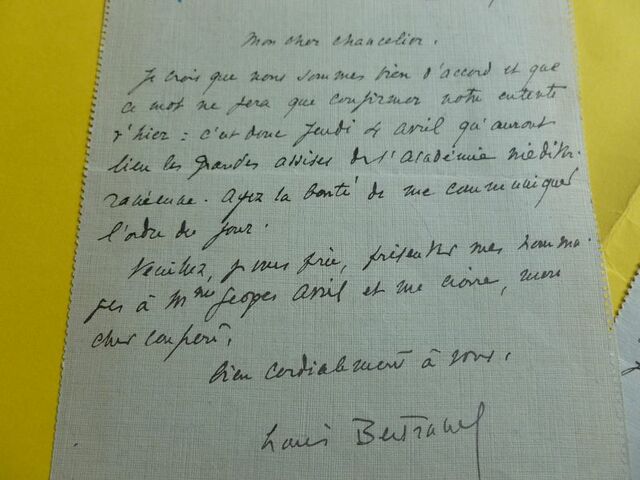 Mon cher Chancelier.
Je crois que nous sommes bien d'accord et que
ce mot ne fera que confirmer notre entente
d'hier : c'est donc Jeudi 4 avril qu'auront
lieu les grandes assises de l'Académie méditer-
ranéenne. Ayez la bonté de me communiquer
l'ordre du jour.
Veuillez, je vous prie, présenter mes homma-
ges à Mme Georges Avril et me croire, mon
cher confrère,
bien cordialement à vous.
Louis Bertrand